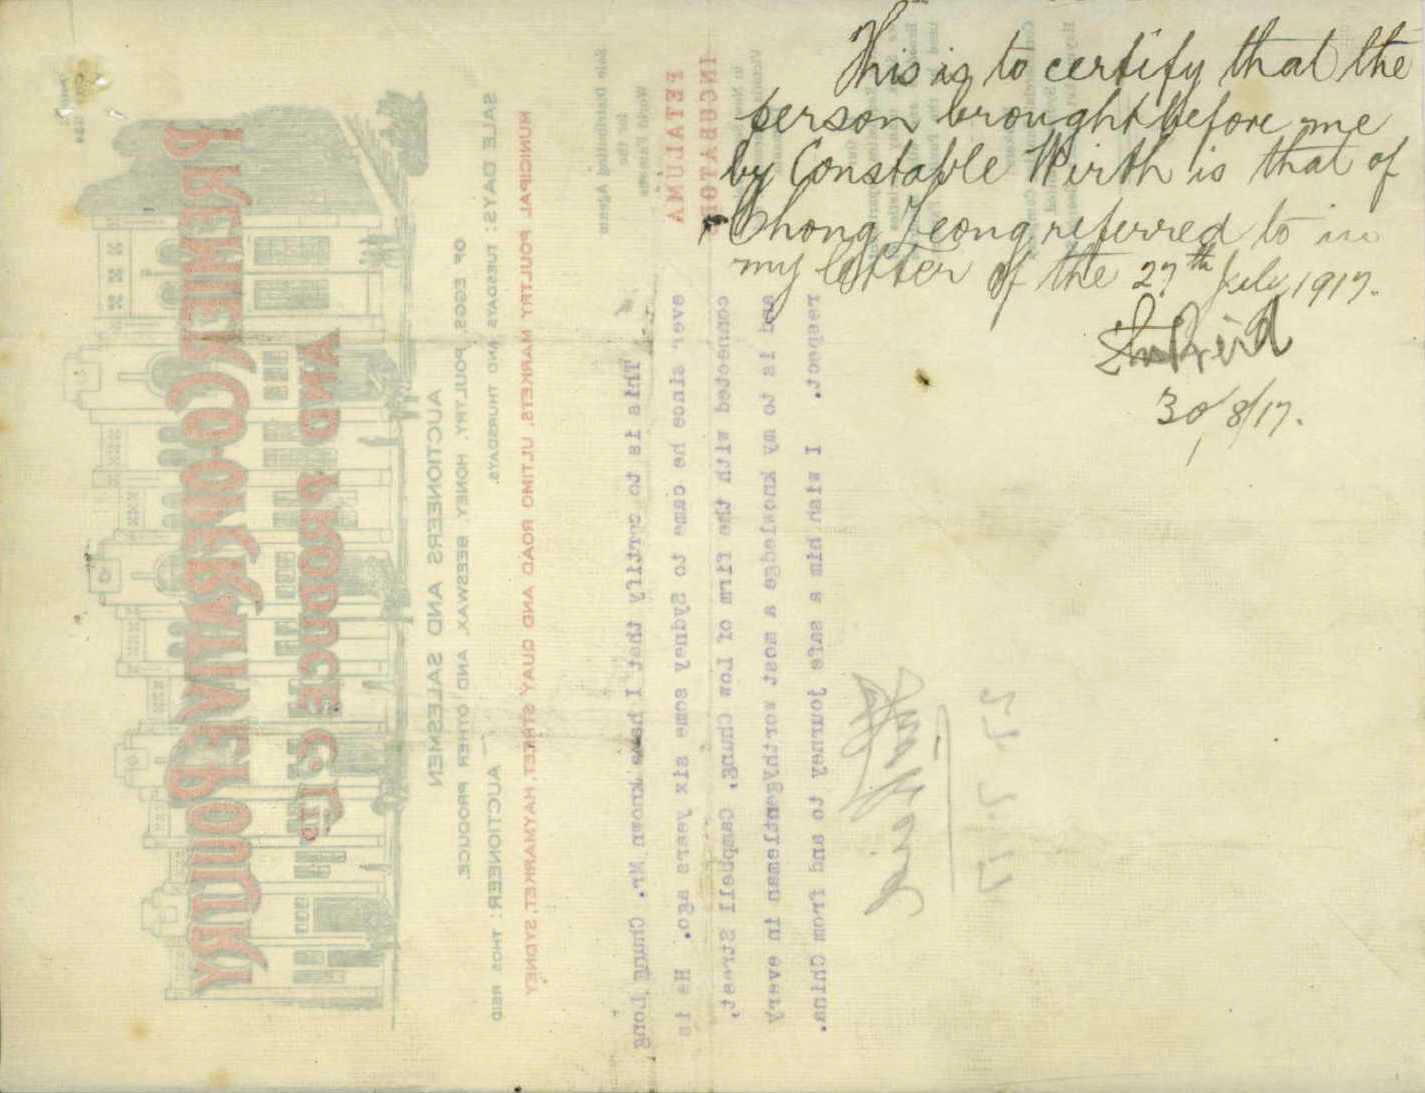 This is to certify that the
person brought before me
by Constable Wirth is that of
Chong Leong referred to in
my letter of the 27th July 1917.
Thos Reid
30/8/17.
PREMIER CO-OPERATIVE POULTRY
AND PRODUCE Co LTD
AUCTIONEERS AND SALESMEN
OF EGGS, POULTRY, HONEY, BEESWAX, AND OTHER PRODUCE.
SALE DAYS: TUESDAYS AND THURSDAYS.
AUCTIONEER: THOS REID
MUNICIPAL POULTRY MARKETS, ULTIMO ROAD AND QUAY STREET, HAYMARKET, SYDNEY
Sole Distributing Agents
for the
World Famous
PETALUMA
INCUBATORS
This is to certify that I have known Mr. Chung Long
ever since he came to Sydney some six years ago. He is
connected with the firm of Low Chung, Campbell Street,
and is to my knowledge a most worthy gentleman in every
respect. I wish him a safe journey to and from China.